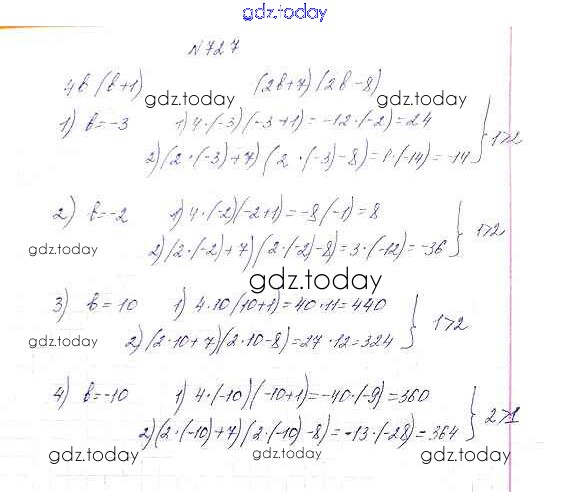 gdz.today
gdz.today
N 727
4b (b+1) (2b+7) (2b-8)
gdz.today gdz.today
1) b=-3 1) 4·(-3)(-3+1)=-12·(-2)=24
2) (2·(-3)+7)(2·(-3)-8)=1·(-14)=-14 } 1>2
2) b=-2 1) 4·(-2)(-2+1)=-8(-1)=8
2) (2·(-2)+7)(2·(-2)-8)=3·(-12)=-36 } 1>2
gdz.today
gdz.today
3) b=10 1) 4·10(10+1)=40·11=440
2) (2·10+7)(2·10-8)=27·12=324 } 1>2
gdz.today
4) b=-10 1) 4·(-10)(-10+1)=-40·(-9)=360
2) (2·(-10)+7)(2·(-10)-8)=-13·(-28)=364 } 2>1
gdz.today gdz.today gdz.today